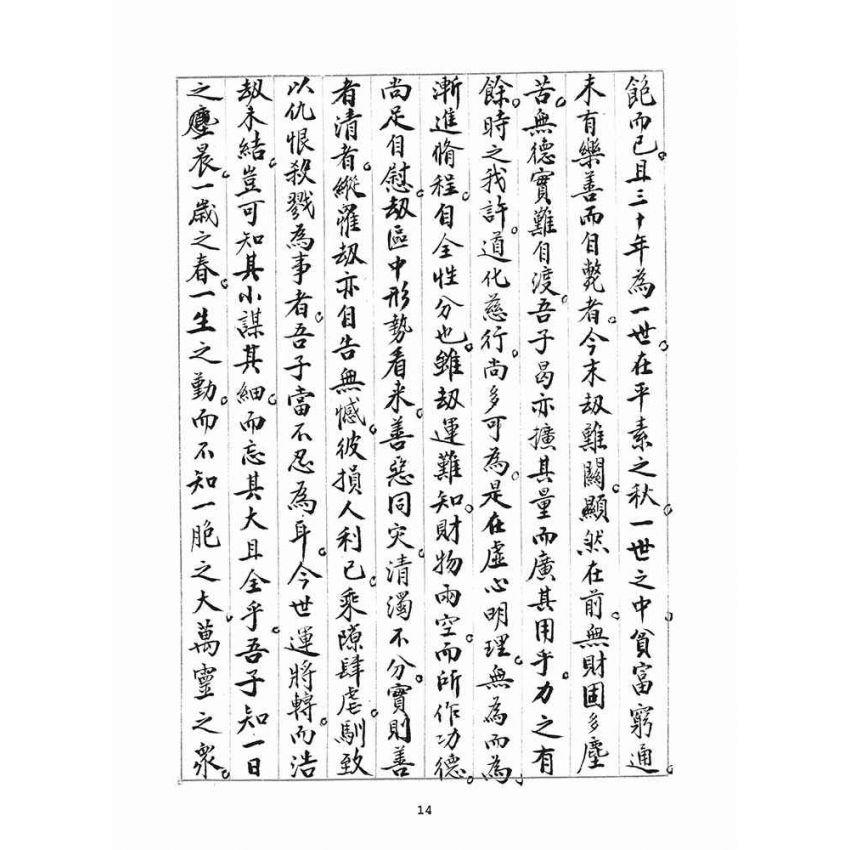 飽而已且三十年為一世。在平素之秋。一世之中貧富窮通。
未有樂善而自斃者。今末劫難關。顯然在前。無財固多塵
苦。無德實難自渡。吾子曷亦擴其量而廣其用乎。力之有
餘。時之我許。道化慈行。尚多可為。是在虛心明理。無為而為。
漸進脩程。自全性分也。雖劫運難知。財物兩空。而所作功德。
尚足自慰。劫區中形勢看来。善惡同灾。清濁不分。實則善
者清者。縱罹劫亦自告無憾。彼損人利己。乘隙肆虐。馴致
以仇恨殺戮為事者。吾子當不忍為耳。今世運將轉。而浩
劫未結。豈可知其小謀其細。而忘其大且全乎。吾子知一日
之塵晨。一歲之春。一生之勤。而不知一胞之大。萬靈之衆。
14